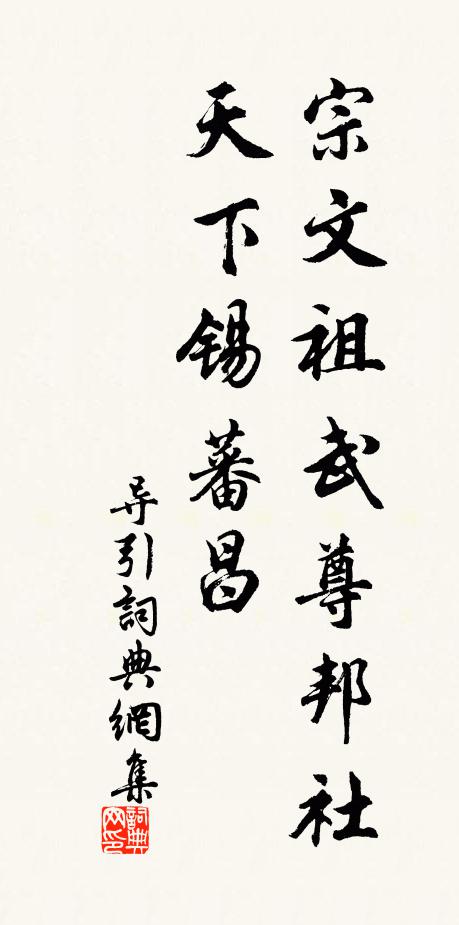 宗文祖武尊邦社
天下锡蕃昌
导引詞典網集
詞典网印